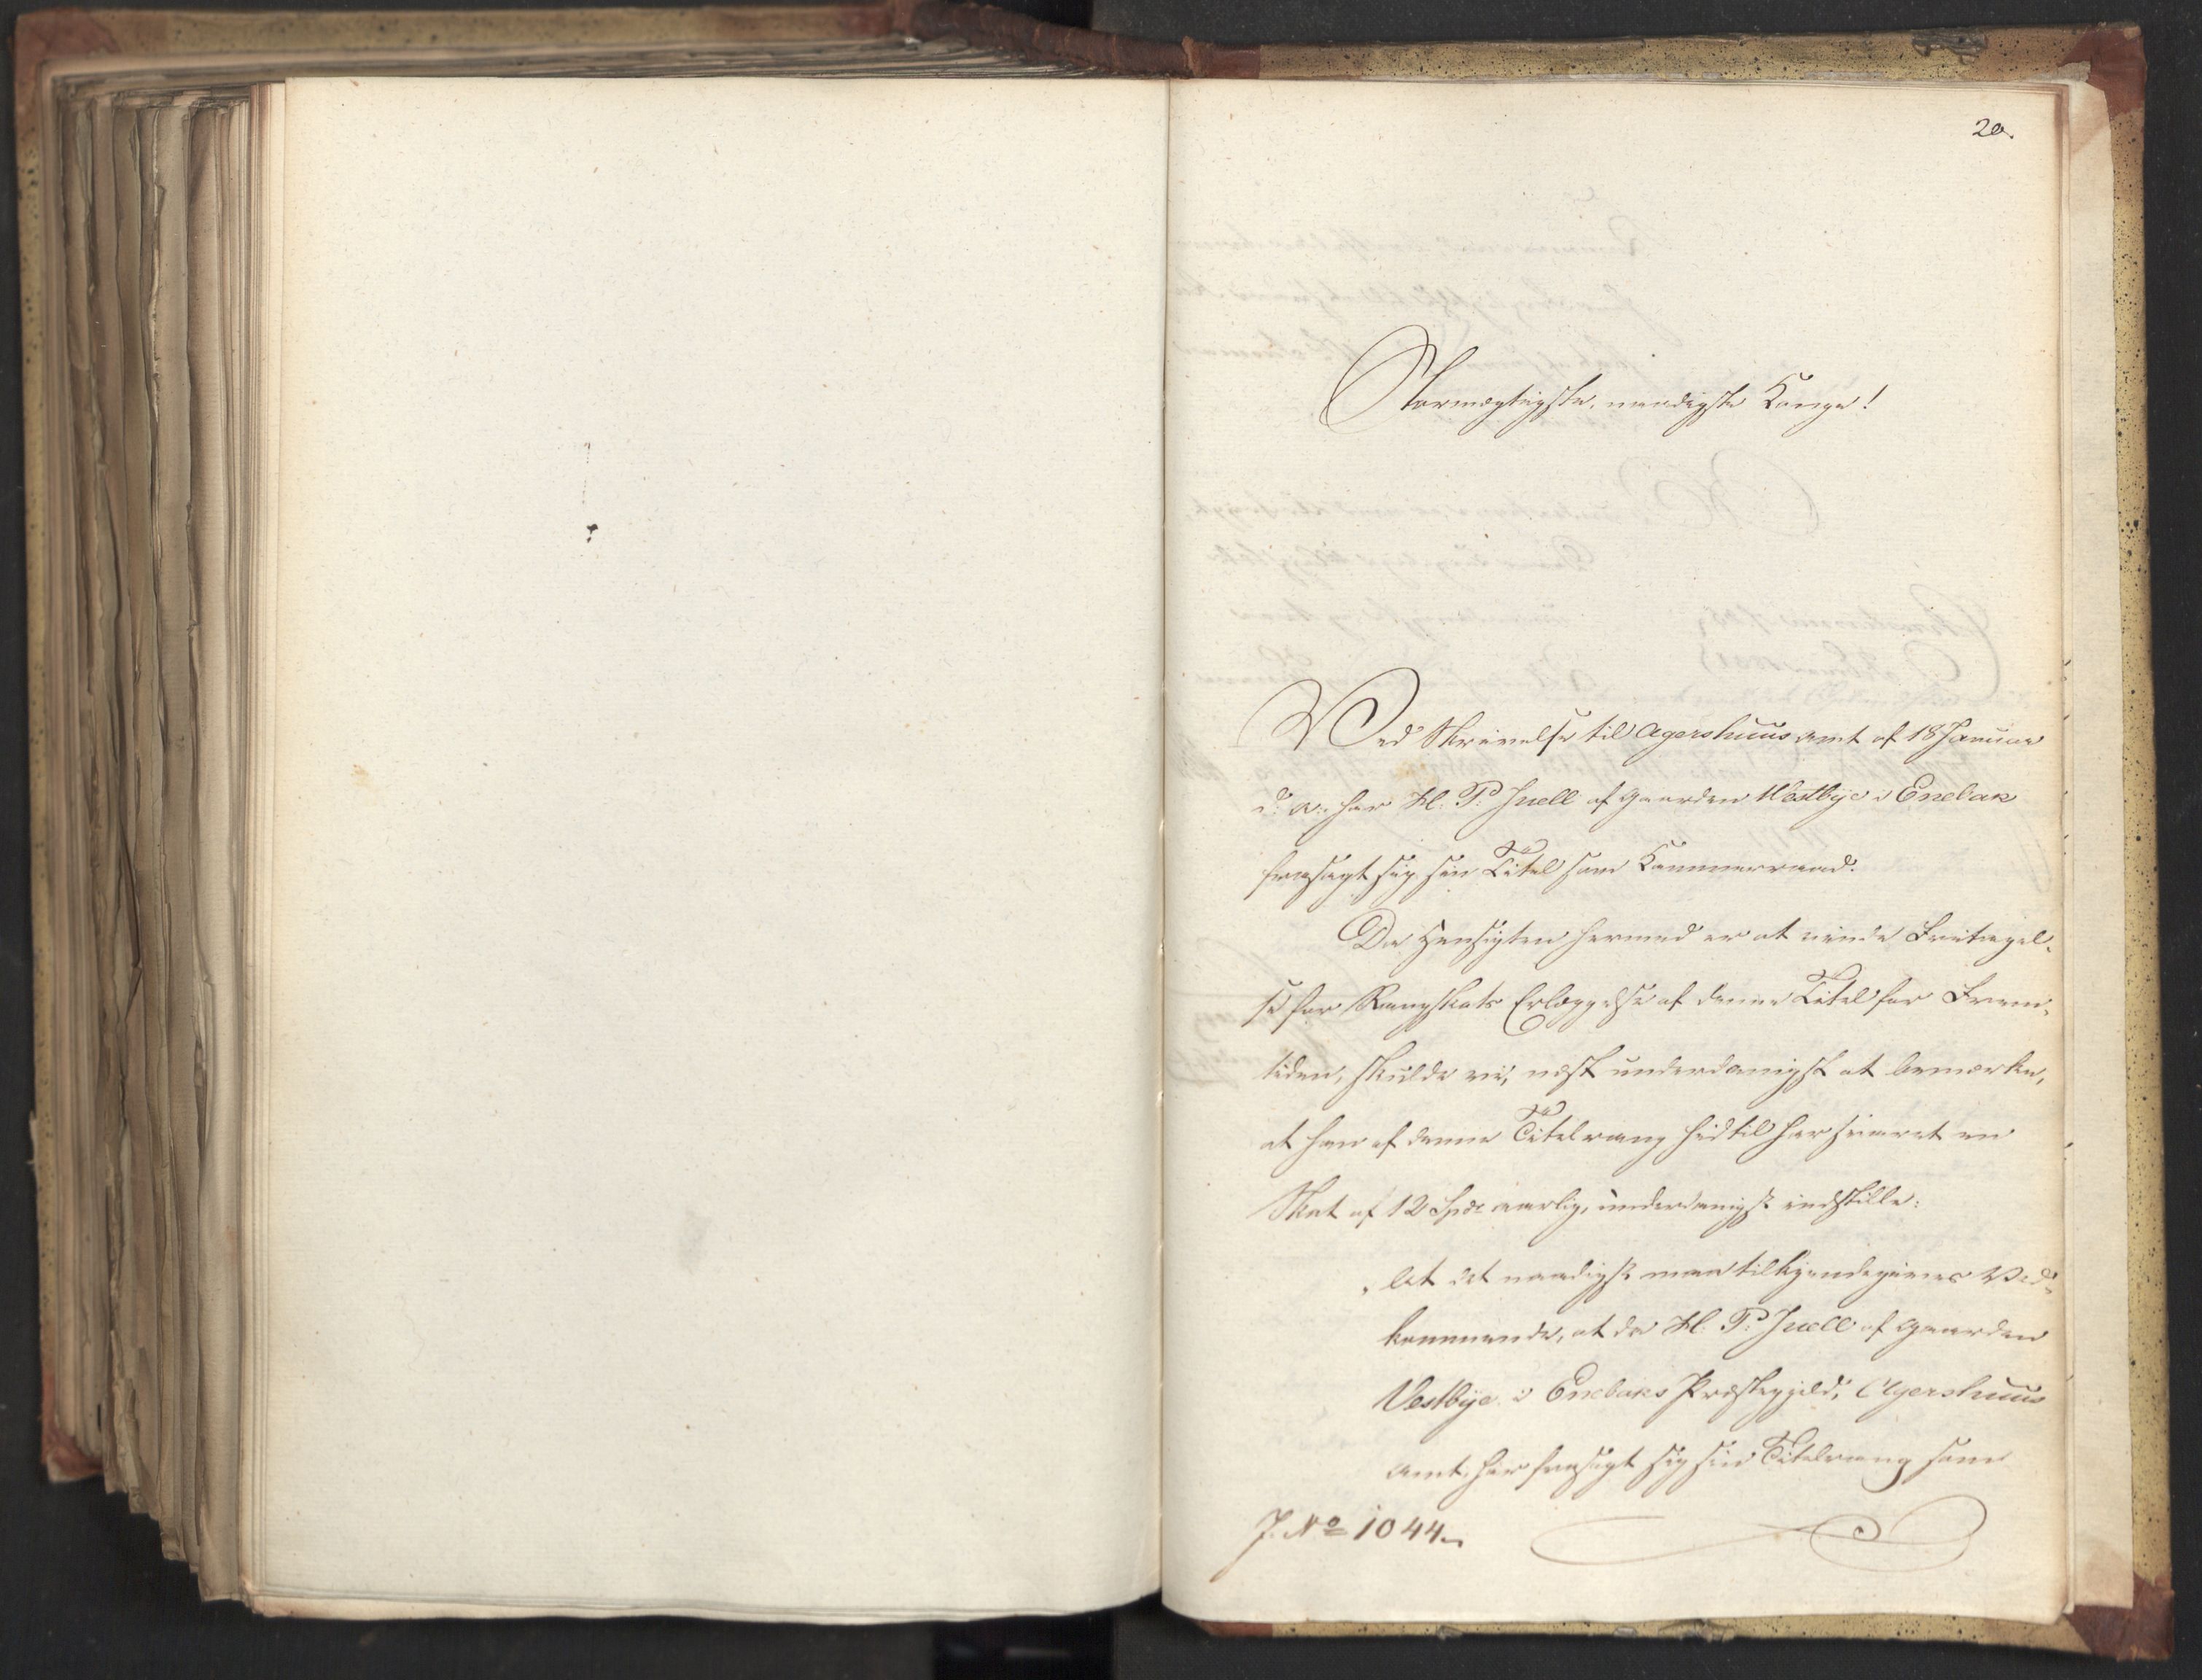 20.
Stormægtigste, naadigste Konge!
Ved Skrivelse til Agershuus Amt af 18 Januar
d: A: har H. P. Juell af Gaarden Westbye i Enebak
frasagt sig sin Titel som Kammerraad.
Da Hensigten hermed er at vinde Fritagel-
se for Rangskats Erlæggelse af denne Titel for Frem-
tiden, skulde vi, næst underdanigst at bemærke,
at han af denne Titelrang hidtil har svaret en
Skat af 12 Spdr aarlig, underdanigst indstille:
"at det naadigst maa tilkjendegives Ved-
kommende, at da H. P. Juell af Gaarden
Vestbye i Enebaks Præstegjeld, Agershuus
Amt, har frasagt sig sin Titelrang som
J. No 1044.